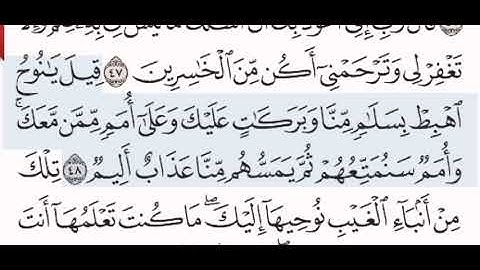 تَغْفِرْ لِى وَتَرْحَمْنِىٓ أَكُن مِّنَ ٱلْخَـٰسِرِينَ ٤٧ قِيلَ يَـٰنُوحُ
ٱهْبِطْ بِسَلَـٰمٍ مِّنَّا وَبَرَكَـٰتٍ عَلَيْكَ وَعَلَىٰٓ أُمَمٍ مِّمَّن مَّعَكَ ۚ
وَأُمَمٌ سَنُمَتِّعُهُمْ ثُمَّ يَمَسُّهُم مِّنَّا عَذَابٌ أَلِيمٌ ٤٨ تِلْكَ
مِنْ أَنۢبَآءِ ٱلْغَيْبِ نُوحِيهَآ إِلَيْكَ ۖ مَا كُنتَ تَعْلَمُهَآ أَنتَ